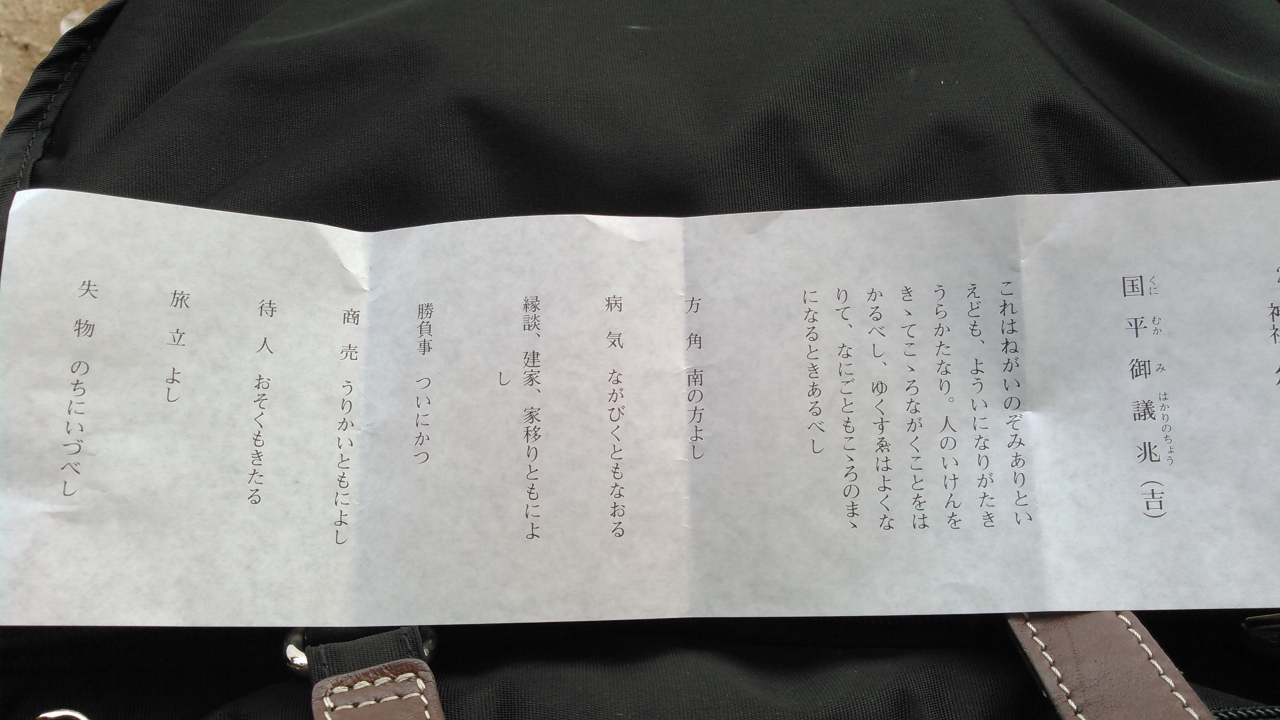 国平御議兆(吉)
くに むか み はかりのちょう
これはねがいのぞみありとい
えども、よういになりがたき
うらかたなり。人のいけんを
きゝてこゝろながくことをは
かるべし、ゆくすゑはよくな
りて、なにごともこゝろのまゝ
になるときあるべし
方角 南の方よし
病気 ながびくともなおる
縁談、建家、家移りともによ
し
勝負事 ついにかつ
商売 うりかいともによし
待人 おそくもきたる
旅立 よし
失物 のちにいづべし